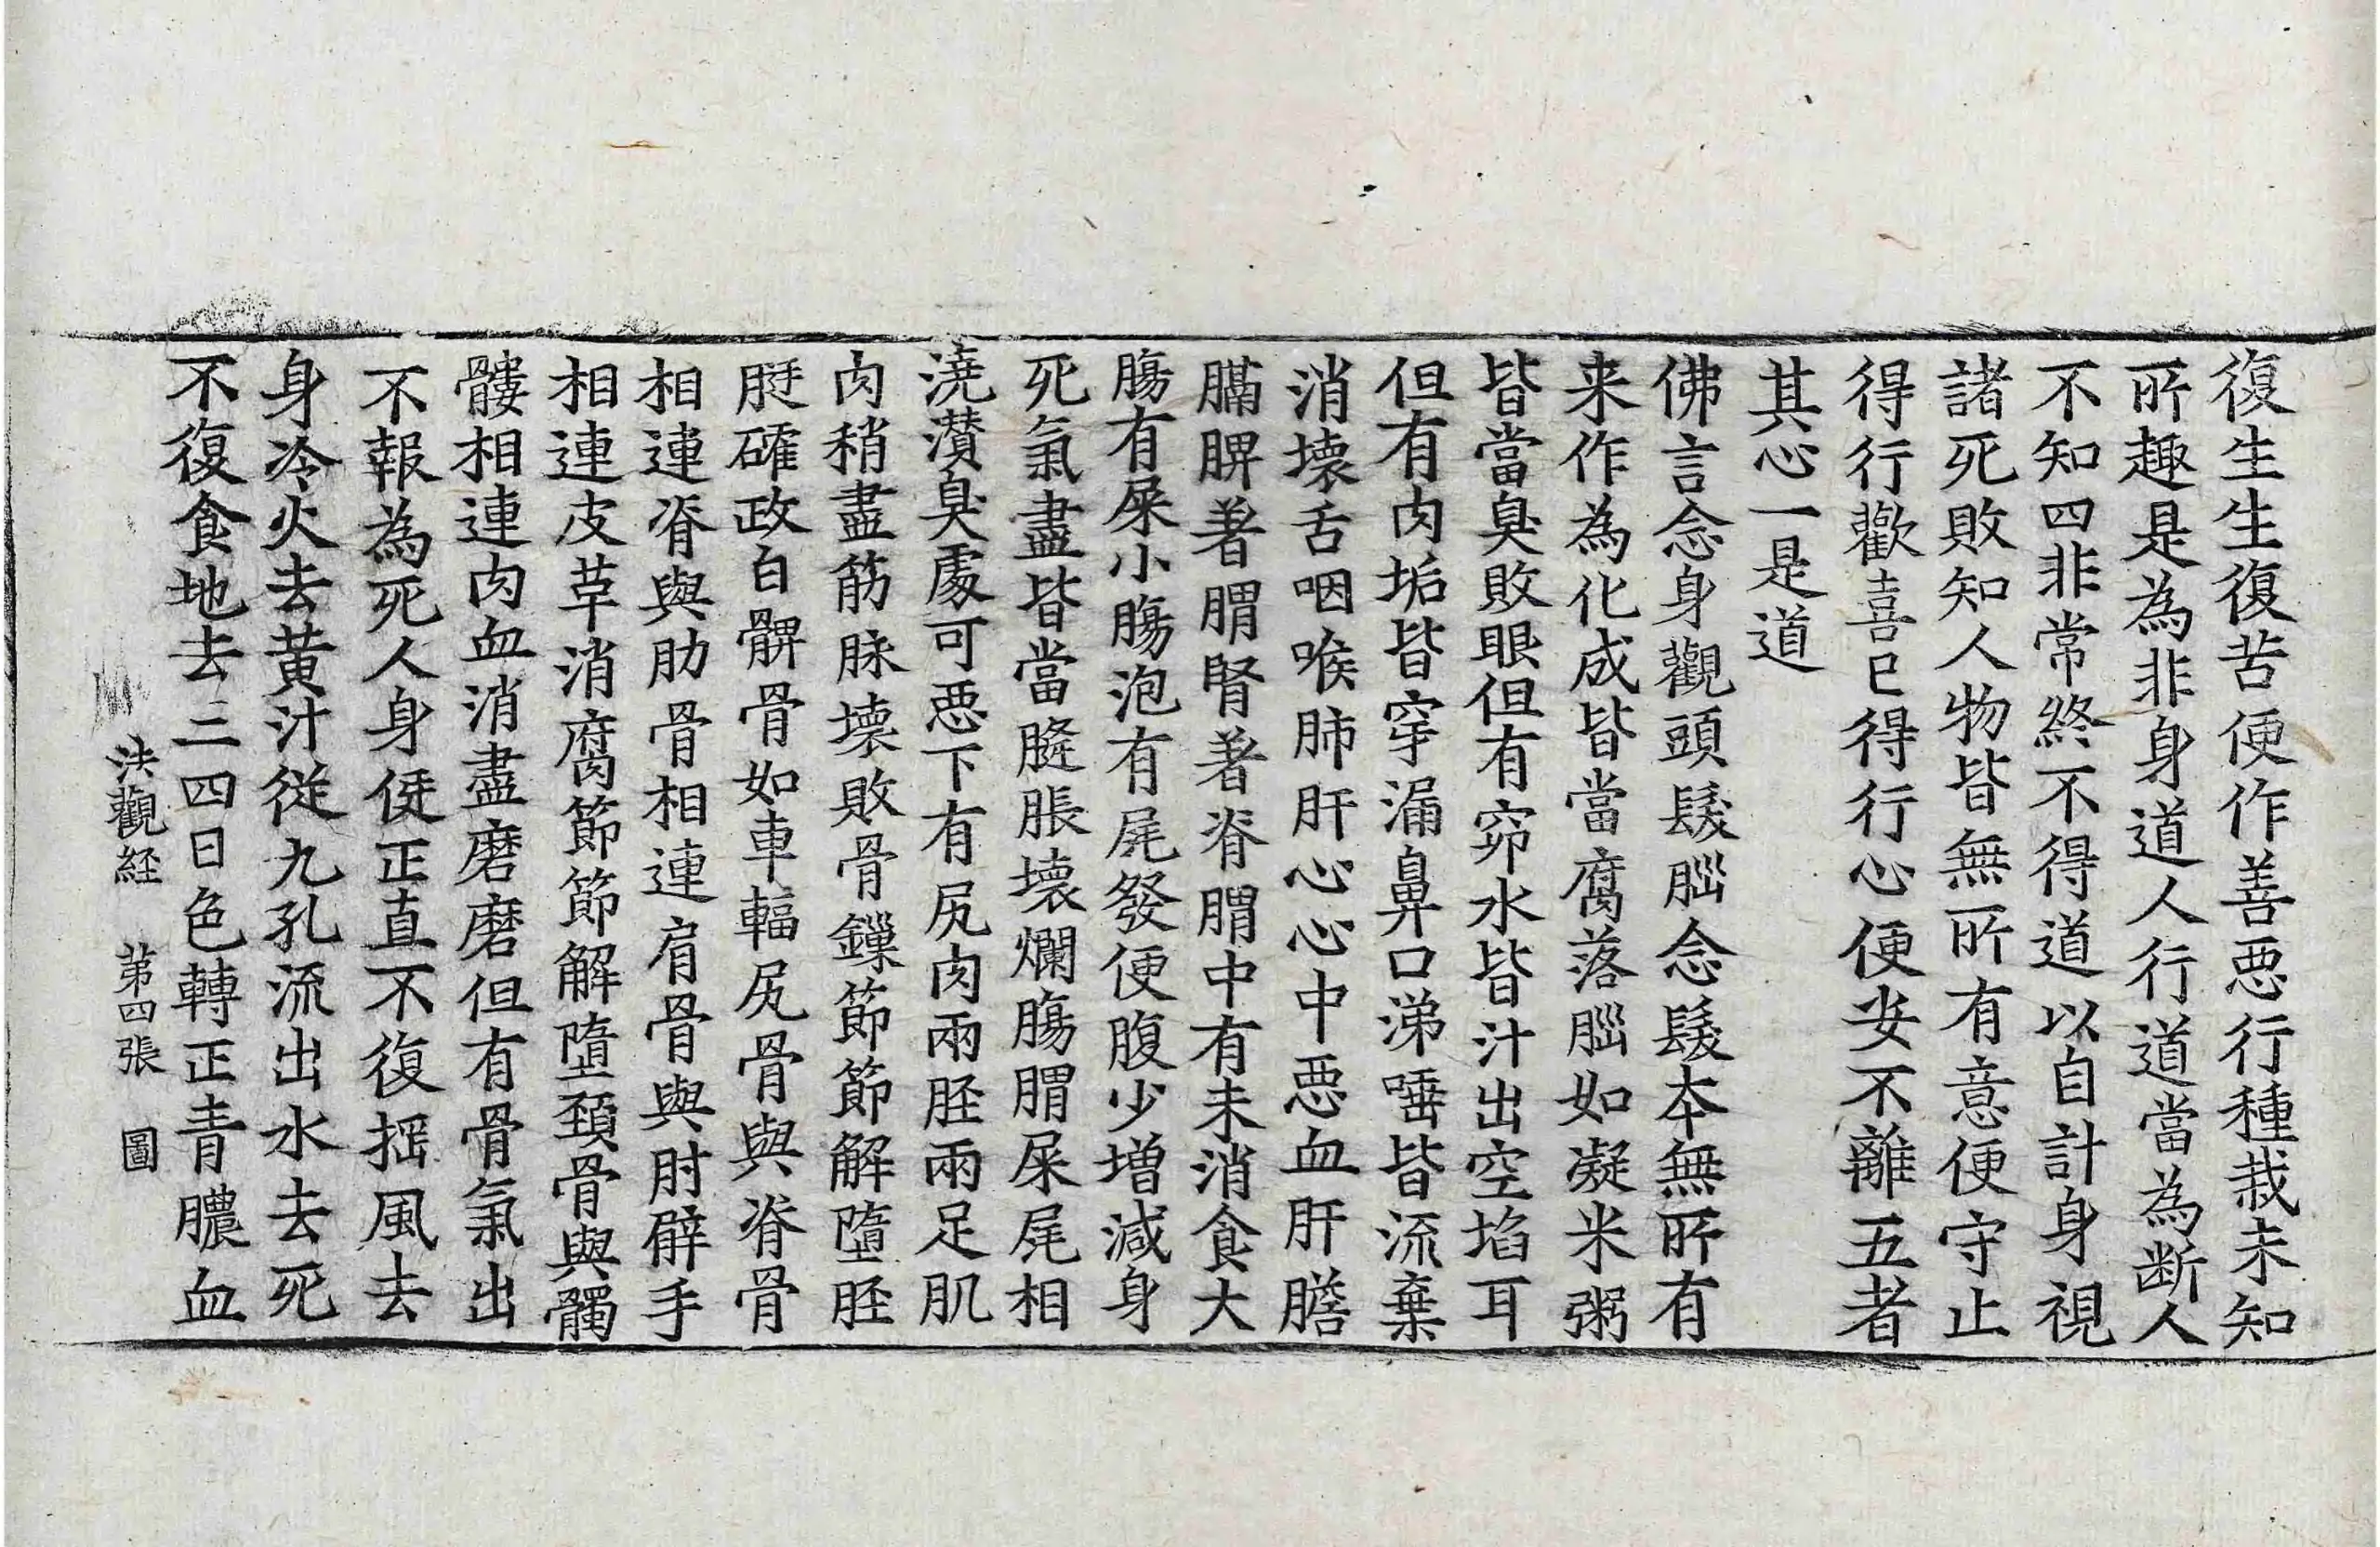 復生生復苦便作善惡行種栽未知
所趣是為非身道人行道當為斷人
不知四非常終不得道以自計身視
諸死敗知人物皆無所有意便守止
得行歡喜已得行心便安不離五者
其心一是道
佛言念身觀頭髮腦念髮本無所有
来作為化成皆當腐落腦如凝米粥
皆當臭敗眼但有窌水皆汁出空埳耳
但有肉垢皆穿漏鼻口涕唾皆流棄
消壞舌咽喉肺肝心心中惡血肝膽
膈脾著胃腎著脊胃中有未消食大
腸有屎小腸泡有尿發便腹少增減身
死氣盡皆當膖脹壞爛腸胃屎尿相
澆灒臭處可惡下有尻肉兩胫兩足肌
肉稍盡筋脉壞敗骨鏁節節解墮胫
脡碓政白髀骨如車輻尻骨與脊骨
相連脊與肋骨相連肩骨與肘臂手
相連皮草消腐節節解墮頚骨與髑
髏相連肉血消盡磨磨但有骨氣出
不報為死人身侹正直不復揺風去
身冷火去黃汁從九孔流出水去死
不復食地去三四日色轉正青膿血
法觀経 第四張 圖